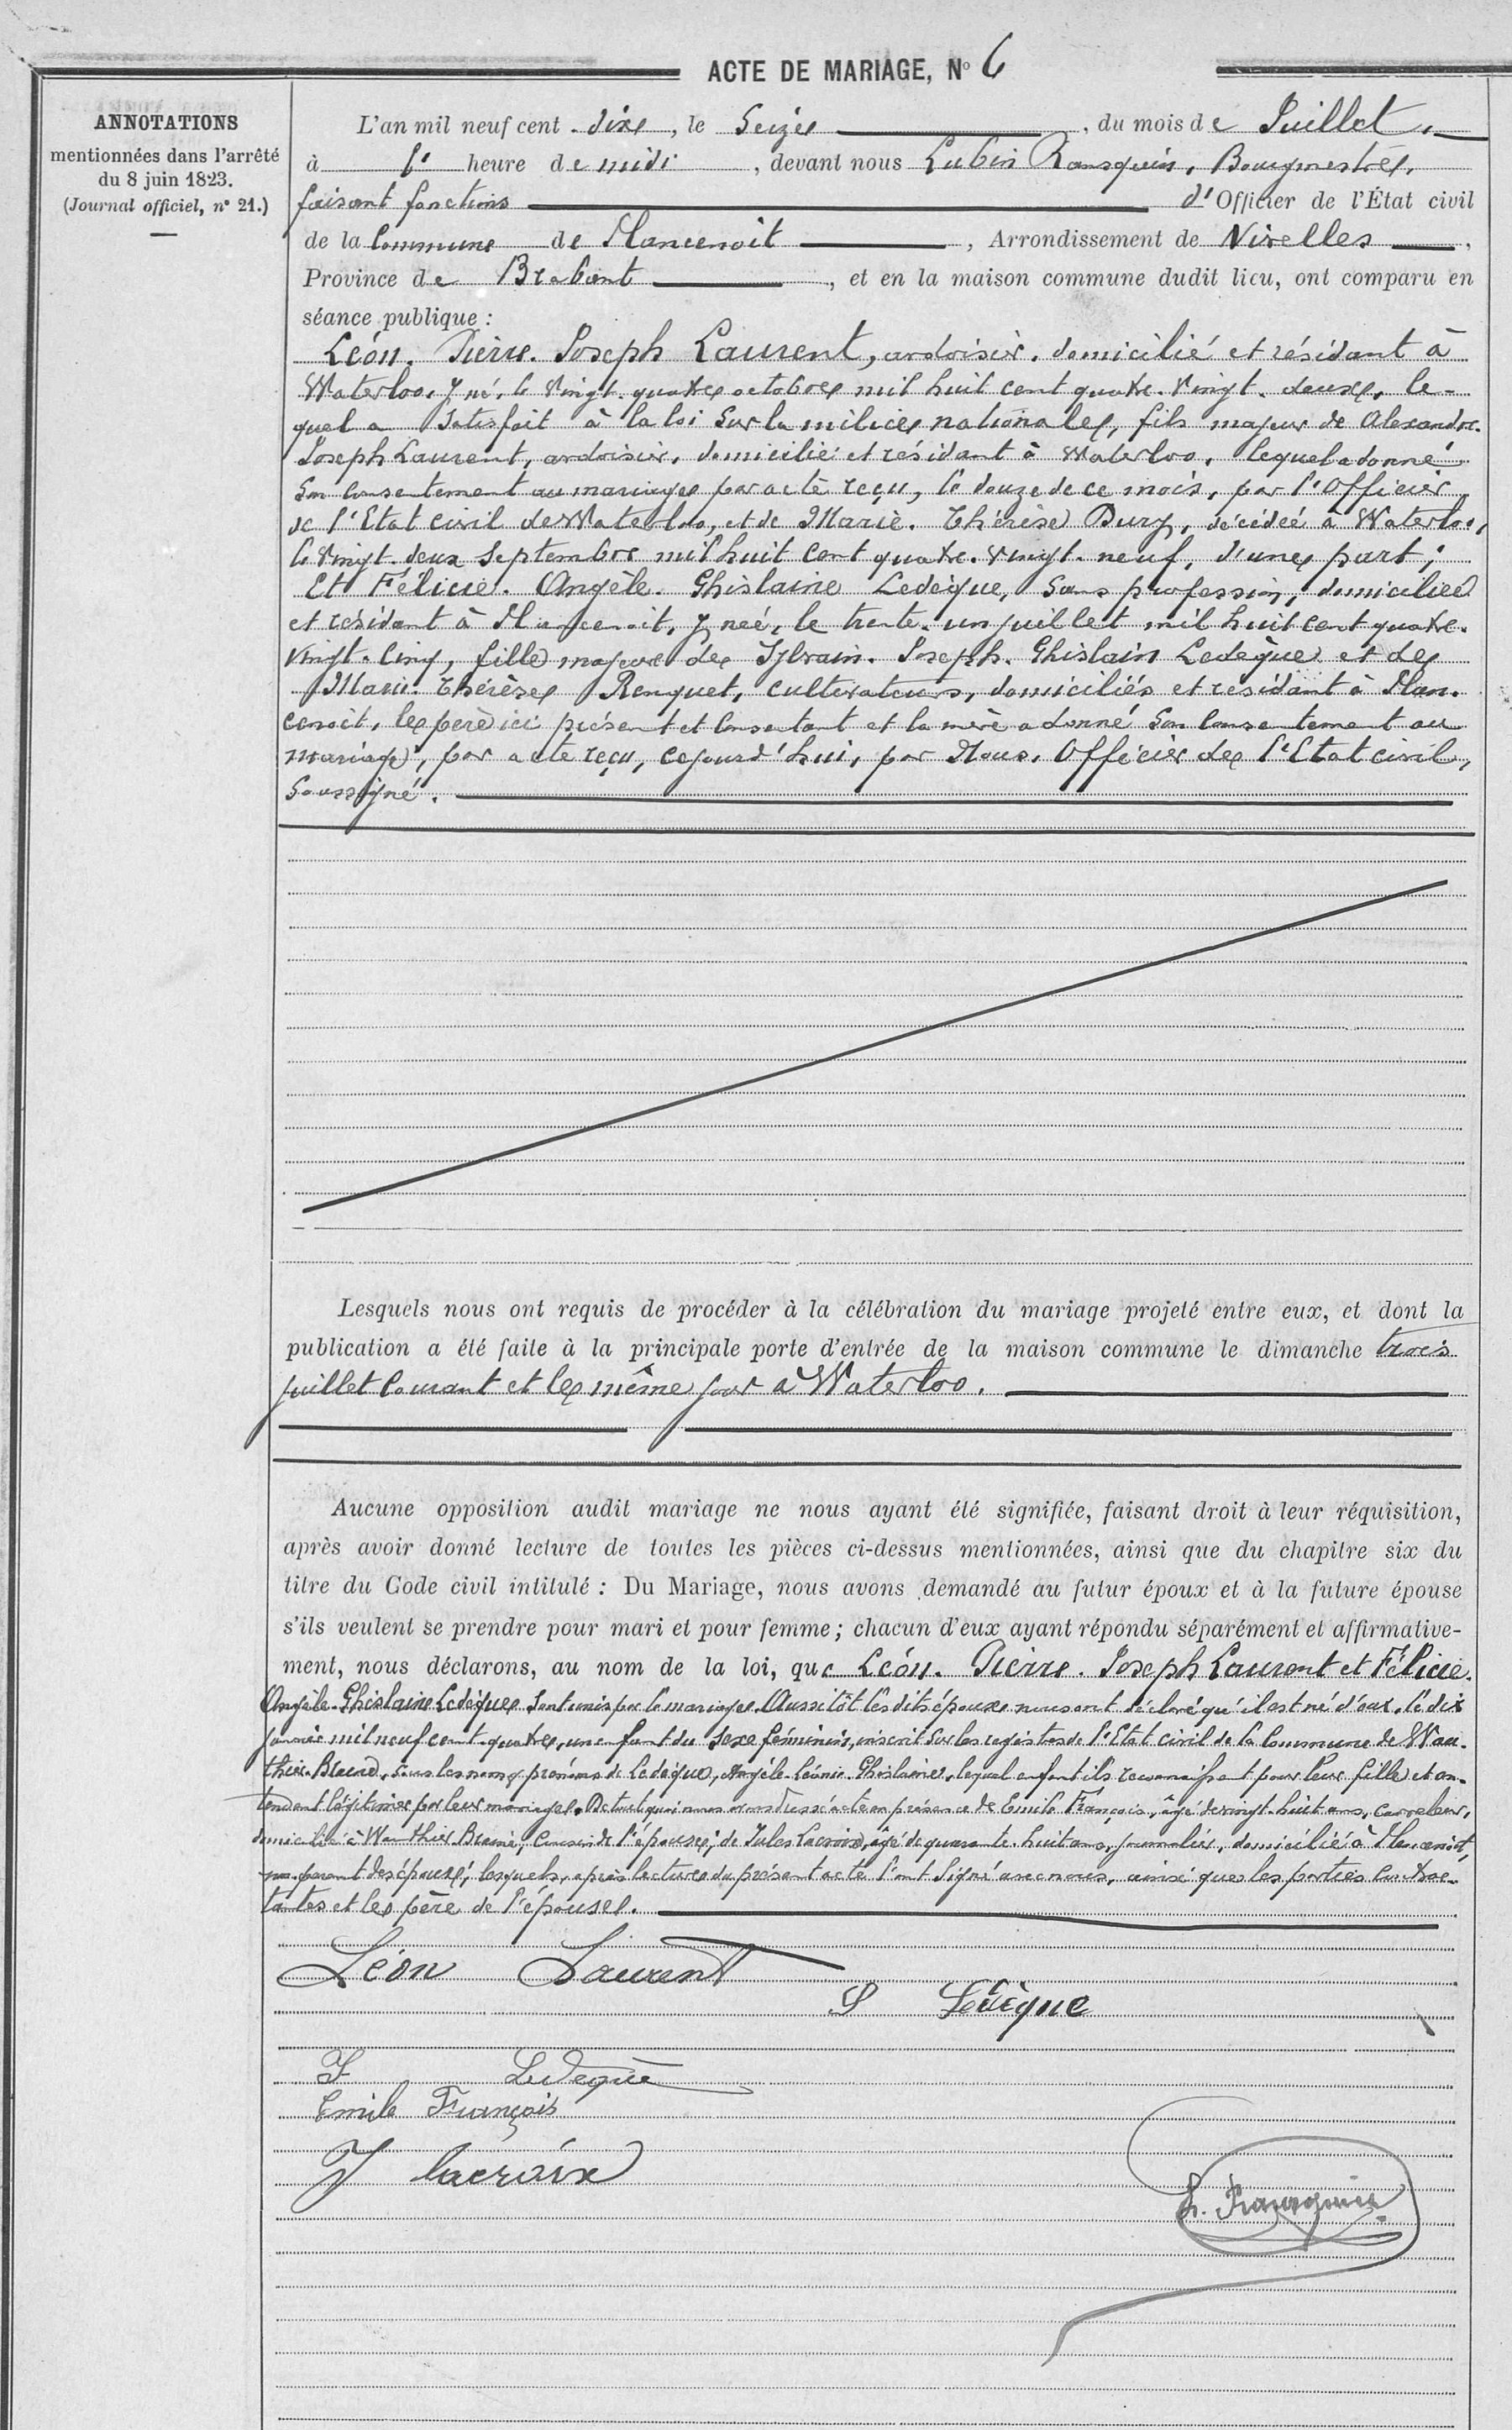 ACTE DE MARIAGE, N° 6
ANNOTATIONS
mentionnées dans l'arrêté
du 8 juin 1823.
(Journal officiel, n° 21.)
L'an mil neuf cent dix, le Seize, du mois de Juillet,
à heure de midi, devant nous Lubin Ransquin, Bourgmestre,
faisant fonctions d'Officier de l'État civil
de la Commune de Plancenoit, Arrondissement de Nivelles,
Province de Brabant, et en la maison commune dudit lieu, ont comparu en
séance publique :
Léon, Pierre, Joseph Laurent, ardoisier, domicilié et résidant à
Waterloo, y né, le vingt-quatre octobre mil huit cent quatre-vingt-deux, le-
quel a satisfait à la loi sur la milice nationale, fils majeur de Alexandre-
Joseph Laurent, ardoisier, domicilié et résidant à Waterloo, lequel a donné
son consentement au mariage par acte reçu, le douze de ce mois, par l'Officier
de l'Etat civil de Waterloo, et de Marie-Thérèse Dury, décédée à Waterloo,
le vingt-deux Septembre mil huit cent quatre-vingt-neuf, d'une part ;
Et Félicie-Angèle-Ghislaine Ledèque, sans profession, domiciliée
et résidant à Plancenoit, y née, le trente-un juillet mil huit cent quatre-
vingt-cinq, fille majeure de Sylvain-Joseph-Ghislain Ledèque et de
Marie-Thérèse Renquet, cultivateurs, domiciliés et résidant à Plan-
cenoit, le père ici présent et consentant et la mère a donné son consentement au
mariage, par acte reçu, cejourd'hui, par Nous, Officier de l'Etat civil,
Soussigné.
Lesquels nous ont requis de procéder à la célébration du mariage projeté entre eux, et dont la
publication a été faite à la principale porte d'entrée de la maison commune le dimanche trois
juillet courant et le même jour à Waterloo.
Aucune opposition audit mariage ne nous ayant été signifiée, faisant droit à leur réquisition,
après avoir donné lecture de toutes les pièces ci-dessus mentionnées, ainsi que du chapitre six du
titre du Code civil intitulé : Du Mariage, nous avons demandé au futur époux et à la future épouse
s'ils veulent se prendre pour mari et pour femme ; chacun d'eux ayant répondu séparément et affirmative-
ment, nous déclarons, au nom de la loi, que Léon-Pierre-Joseph Laurent et Félicie-
Angèle-Ghislaine Ledèque sont unis par le mariage. Aussitôt les dits époux nous ont déclaré qu'il est né d'eux, le dix
janvier mil neuf cent quatre, un enfant du sexe féminin, inscrit sur les registres de l'Etat civil de la Commune de Wau-
thier-Braine, sous les noms et prénoms de Ledèque, Angèle-Léonie-Ghislaine, lequel enfant ils reconnaissent pour leur fille et en-
tendent légitimer par leur mariage. De tout quoi nous avons dressé acte en présence de Emile François, âgé de vingt-huit ans, carreleur,
domicilié à Wauthier Braine, cousin de l'épouse, de Jules Lacroix, âgé de quarante-huit ans, journalier, domicilié à Plancenoit,
non parent des époux, lesquels, après lecture du présent acte l'ont signé avec nous, ainsi que les parties contrac-
tantes et le père de l'épouse.
Léon Laurent
S Ledèque
F Ledeque
Emile François
J lacroix
L. Ransquin